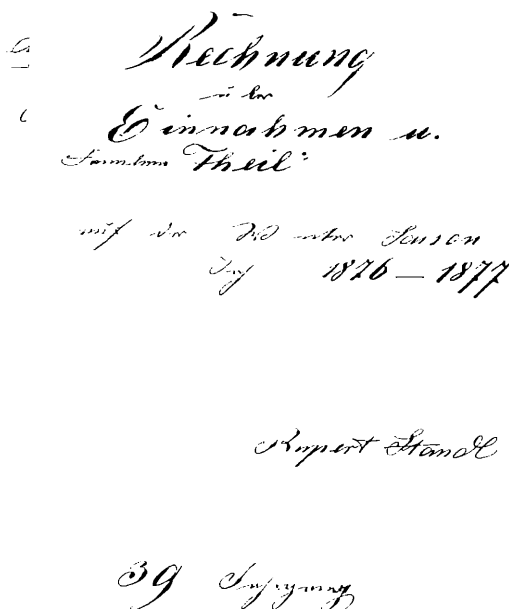 Rechnung
über
Einnahmen u.
Theil
auf der Winter Saison
1876 — 1877
Rupert Standl
39 Jahrgang